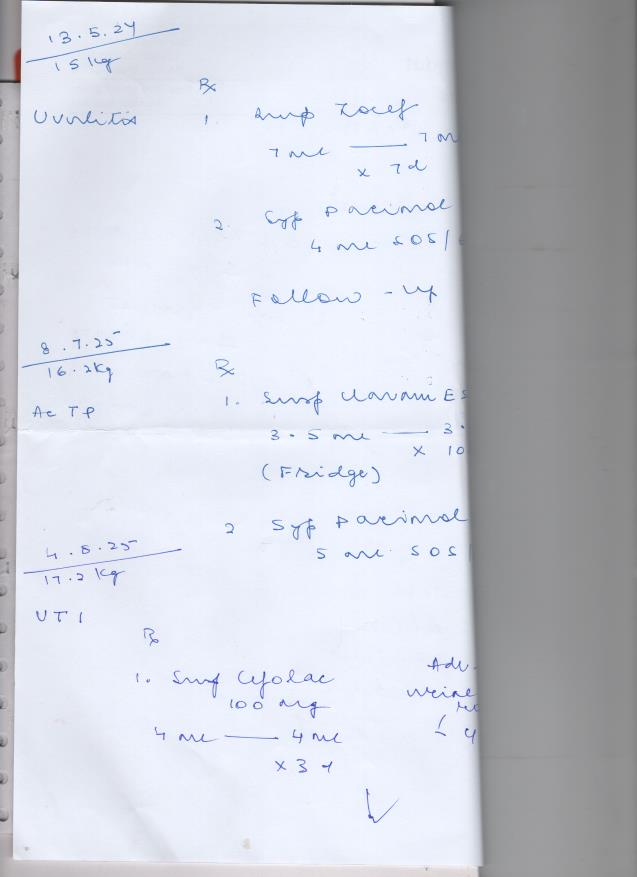 13.5.24
15 kg
Rx
Uvulitis 1. Susp Zocef
7 ml —— 7 m
x 7d
2. Syp Pacimol
4 ml SOS/
Follow - up
8.7.25
16.2kg
Rx
Ac TP 1. Susp Clavam ES
3.5 ml —— 3.
x 10
(Fridge)
2 Syp Pacimol
5 ml SOS
4.8.25
17.2 kg
UTI
Rx
1. Susp Cefolac Adv.
100 mg urine
4 ml —— 4 ml
x 3 d